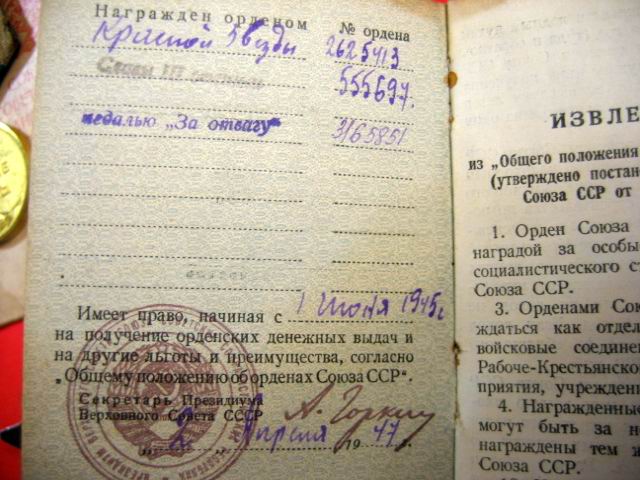 Награжден орденом № ордена
Красной Звезды 2625413
Славы III степени 555697.
медалью „За отвагу“ 3165851
Имеет право, начиная с 1 Июня 1945г
на получение орденских денежных выдач и
на другие льготы и преимущества, согласно
„Общему положению об орденах Союза ССР“.
Секретарь Президиума
Верховного Совета СССР А. Горкин
„ 2 “ Апреля 1947г.
ИЗВЛЕ
из „Общего положения
(утверждено постан
Союза ССР от
1. Орден Союза
наградой за особы
социалистического ст
Союза ССР.
3. Орденами Сою
ждаться как отдел
войсковые соедине
Рабоче-Крестьянско
приятия, учрежден
4. Награжденны
могут быть за н
награждены тем ж
Союза ССР.